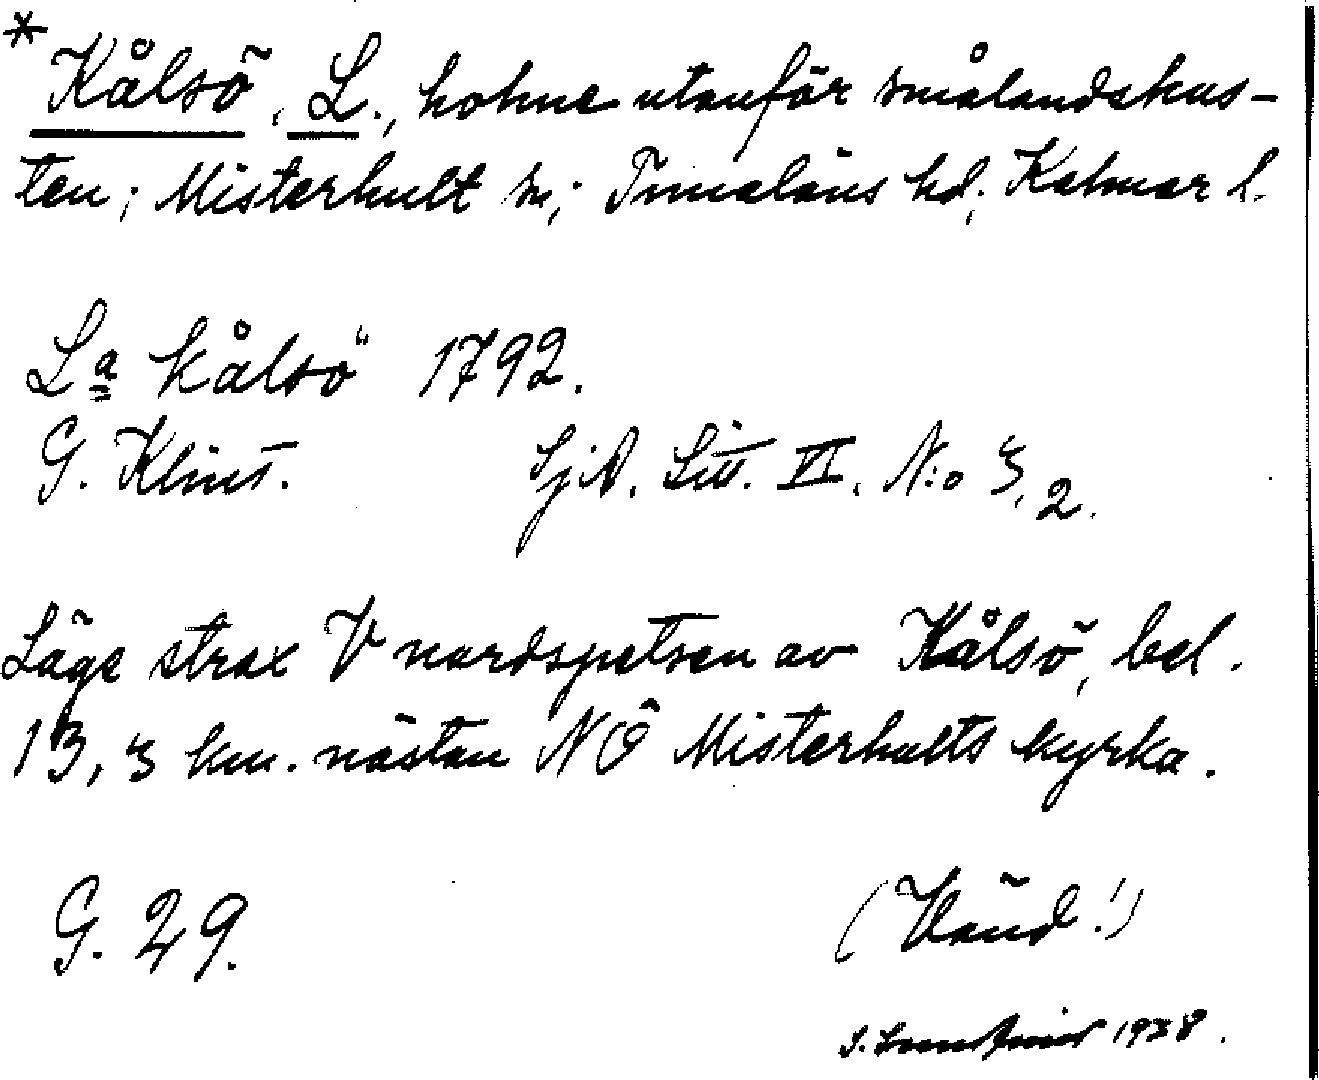 * Kålsö, L., holme utanför smålandskus-
ten; Misterhult sn; Tunaläns hd; Kalmar l.
La Kålsö 1792.
G. Klint. SjA. Litt. VI. N:o 3, 2.
Läge strax V nordspetsen av Kålsö, bel.
13,3 km. nästan NÖ Misterhults kyrka.
G. 29. (Vänd!)
1938.